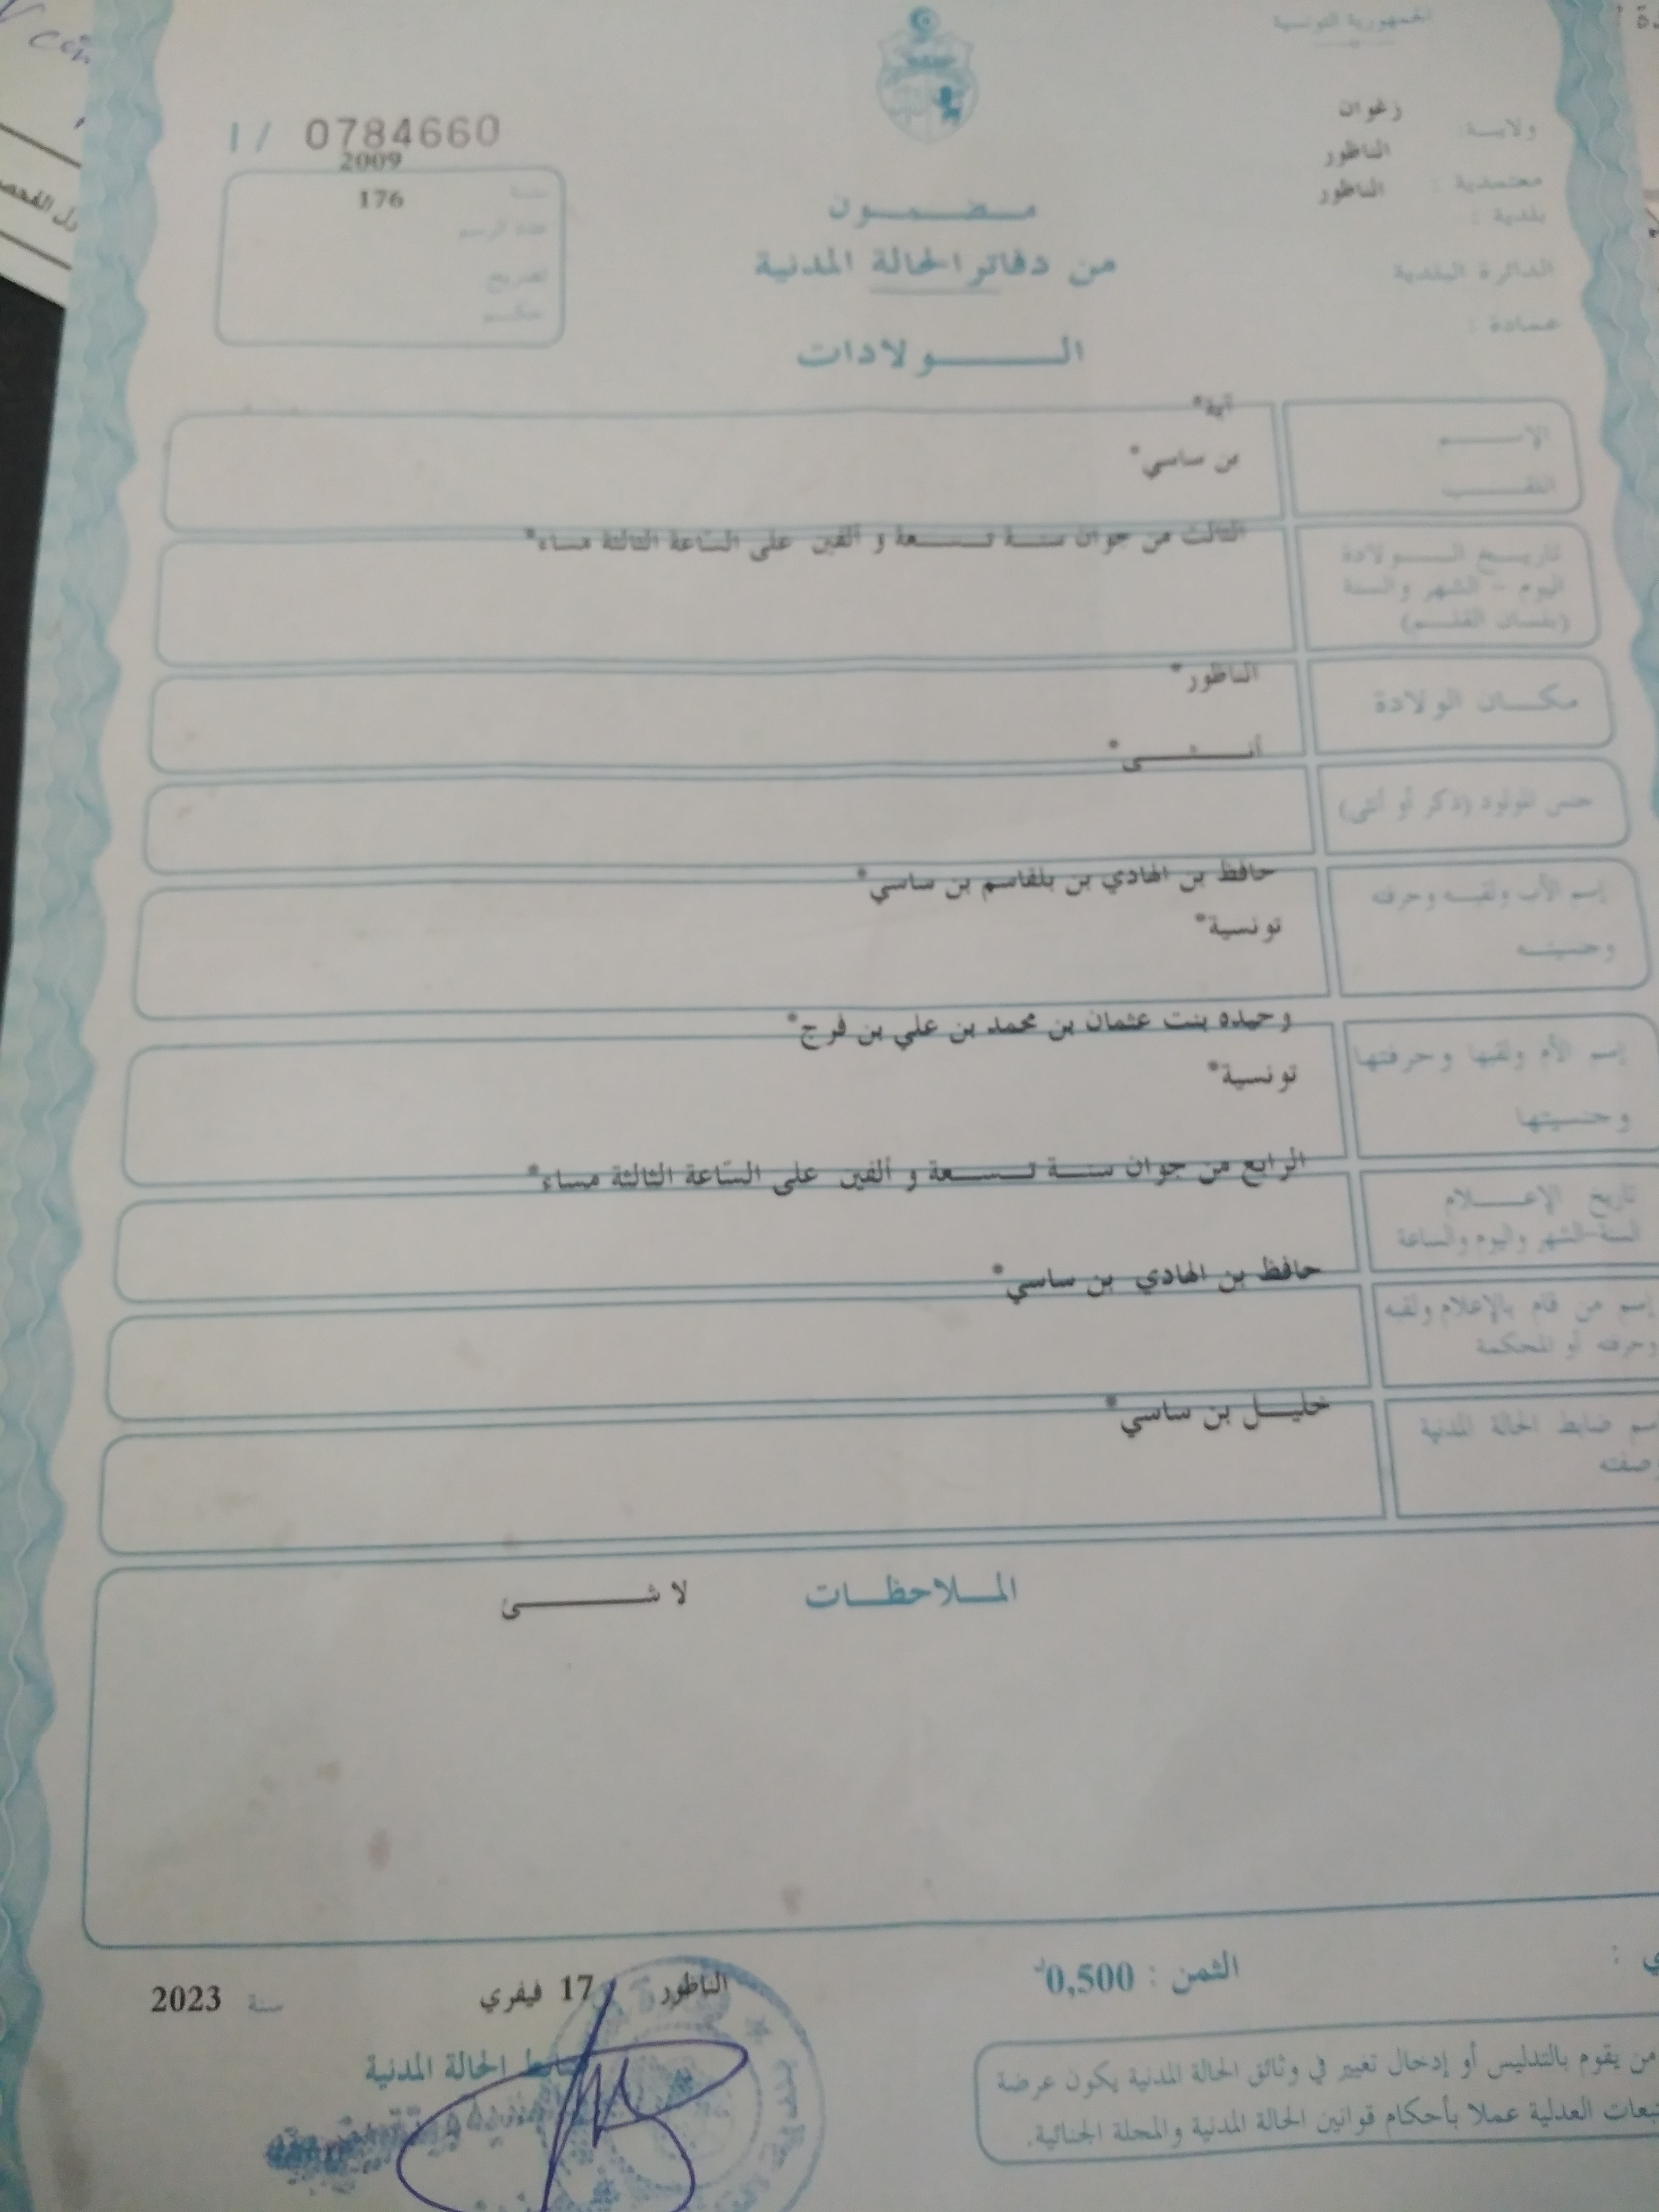 الجمهورية التونسية
ولاية: زغوان
معتمدية : الناظور
بلدية : الناظور
الدائرة البلدية
عمادة :
1 / 0784660
سنة 2009
عدد الرسم 176
تصريح
حكم
مضمون
من دفاتر الحالة المدنية
الولادات
الإسم آية*
اللقب بن ساسي*
تاريخ الولادة
اليوم - الشهر والسنة
(بلسان القلم)
الثالث من جوان سنة تسعة و ألفين على الساعة الثالثة مساء*
مكان الولادة الناظور*
جنس المولود (ذكر أو أنثى) أنثى*
إسم الأب ولقبه وحرفته
وجنسيته
حافظ بن الهادي بن بلقاسم بن ساسي*
تونسية*
إسم الأم ولقبها وحرفتها
وجنسيتها
وحيده بنت عثمان بن محمد بن علي بن فرج*
تونسية*
تاريخ الإعلام
السنة-الشهر واليوم والساعة
الرابع من جوان سنة تسعة و ألفين على السّاعة الثالثة مساء*
إسم من قام بالإعلام ولقبه
وحرفته أو المحكمة
حافظ بن الهادي بن ساسي*
إسم ضابط الحالة المدنية
وصفته
خليل بن ساسي*
الملاحظات لا شئ
الثمن : 0,500د
الناظور 17 فيفري سنة 2023
ضابط الحالة المدنية
من يقوم بالتدليس أو إدخال تغيير في وثائق الحالة المدنية يكون عرضة
العدلية عملا بأحكام قوانين الحالة المدنية والمجلة الجنائية.